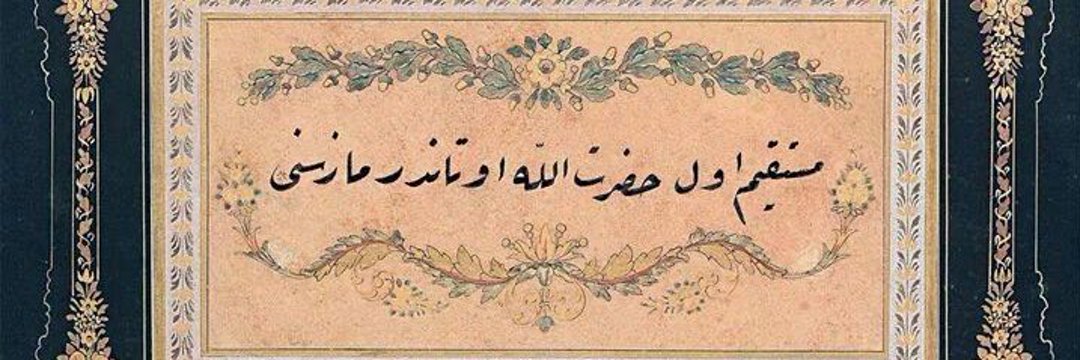 مستقيم اول حضرت اللّه اوتاندرمازسنى